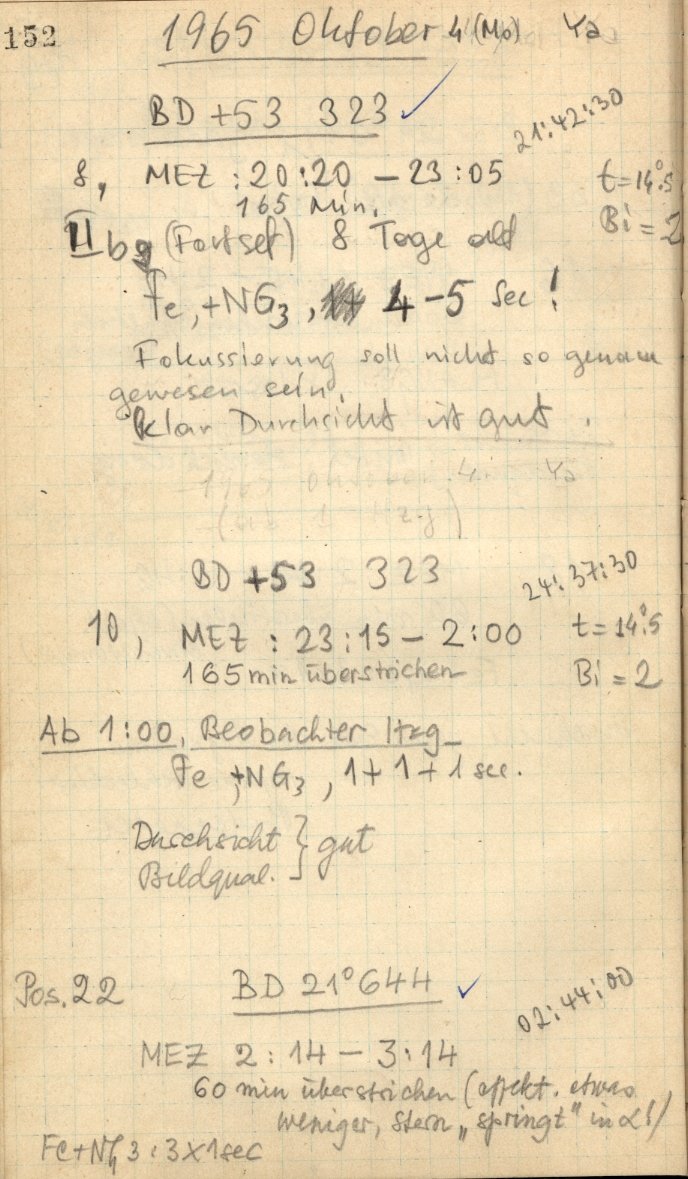 152 1965 Oktober 4 (Mo) Ya
BD +53 323 ✓
21:42:30
8, MEZ : 20:20 – 23:05 t=14°.5
165 Min. Bi = 2
II bg (Fortset) 8 Tage alt
Fe, +NG3, 4–5 Sec!
Fokussierung soll nicht so genau
gewesen sein.
klar Durchsicht ist gut.
1965 Oktober 4. Ya
BD +53 323
24:37:30
10, MEZ : 23:15 – 2:00 t=14°.5
165 min überstrichen Bi = 2
Ab 1:00, Beobachter Htzg
Fe, +NG3, 1+1+1 sec.
Durchsicht } gut
Bildqual.
Pos. 22 BD 21° 644 ✓
02:44:00
MEZ 2:14 – 3:14
60 min überstrichen (effekt. etwas
weniger, Stern „springt" in α!)
Fe+NG 3 : 3×1sec